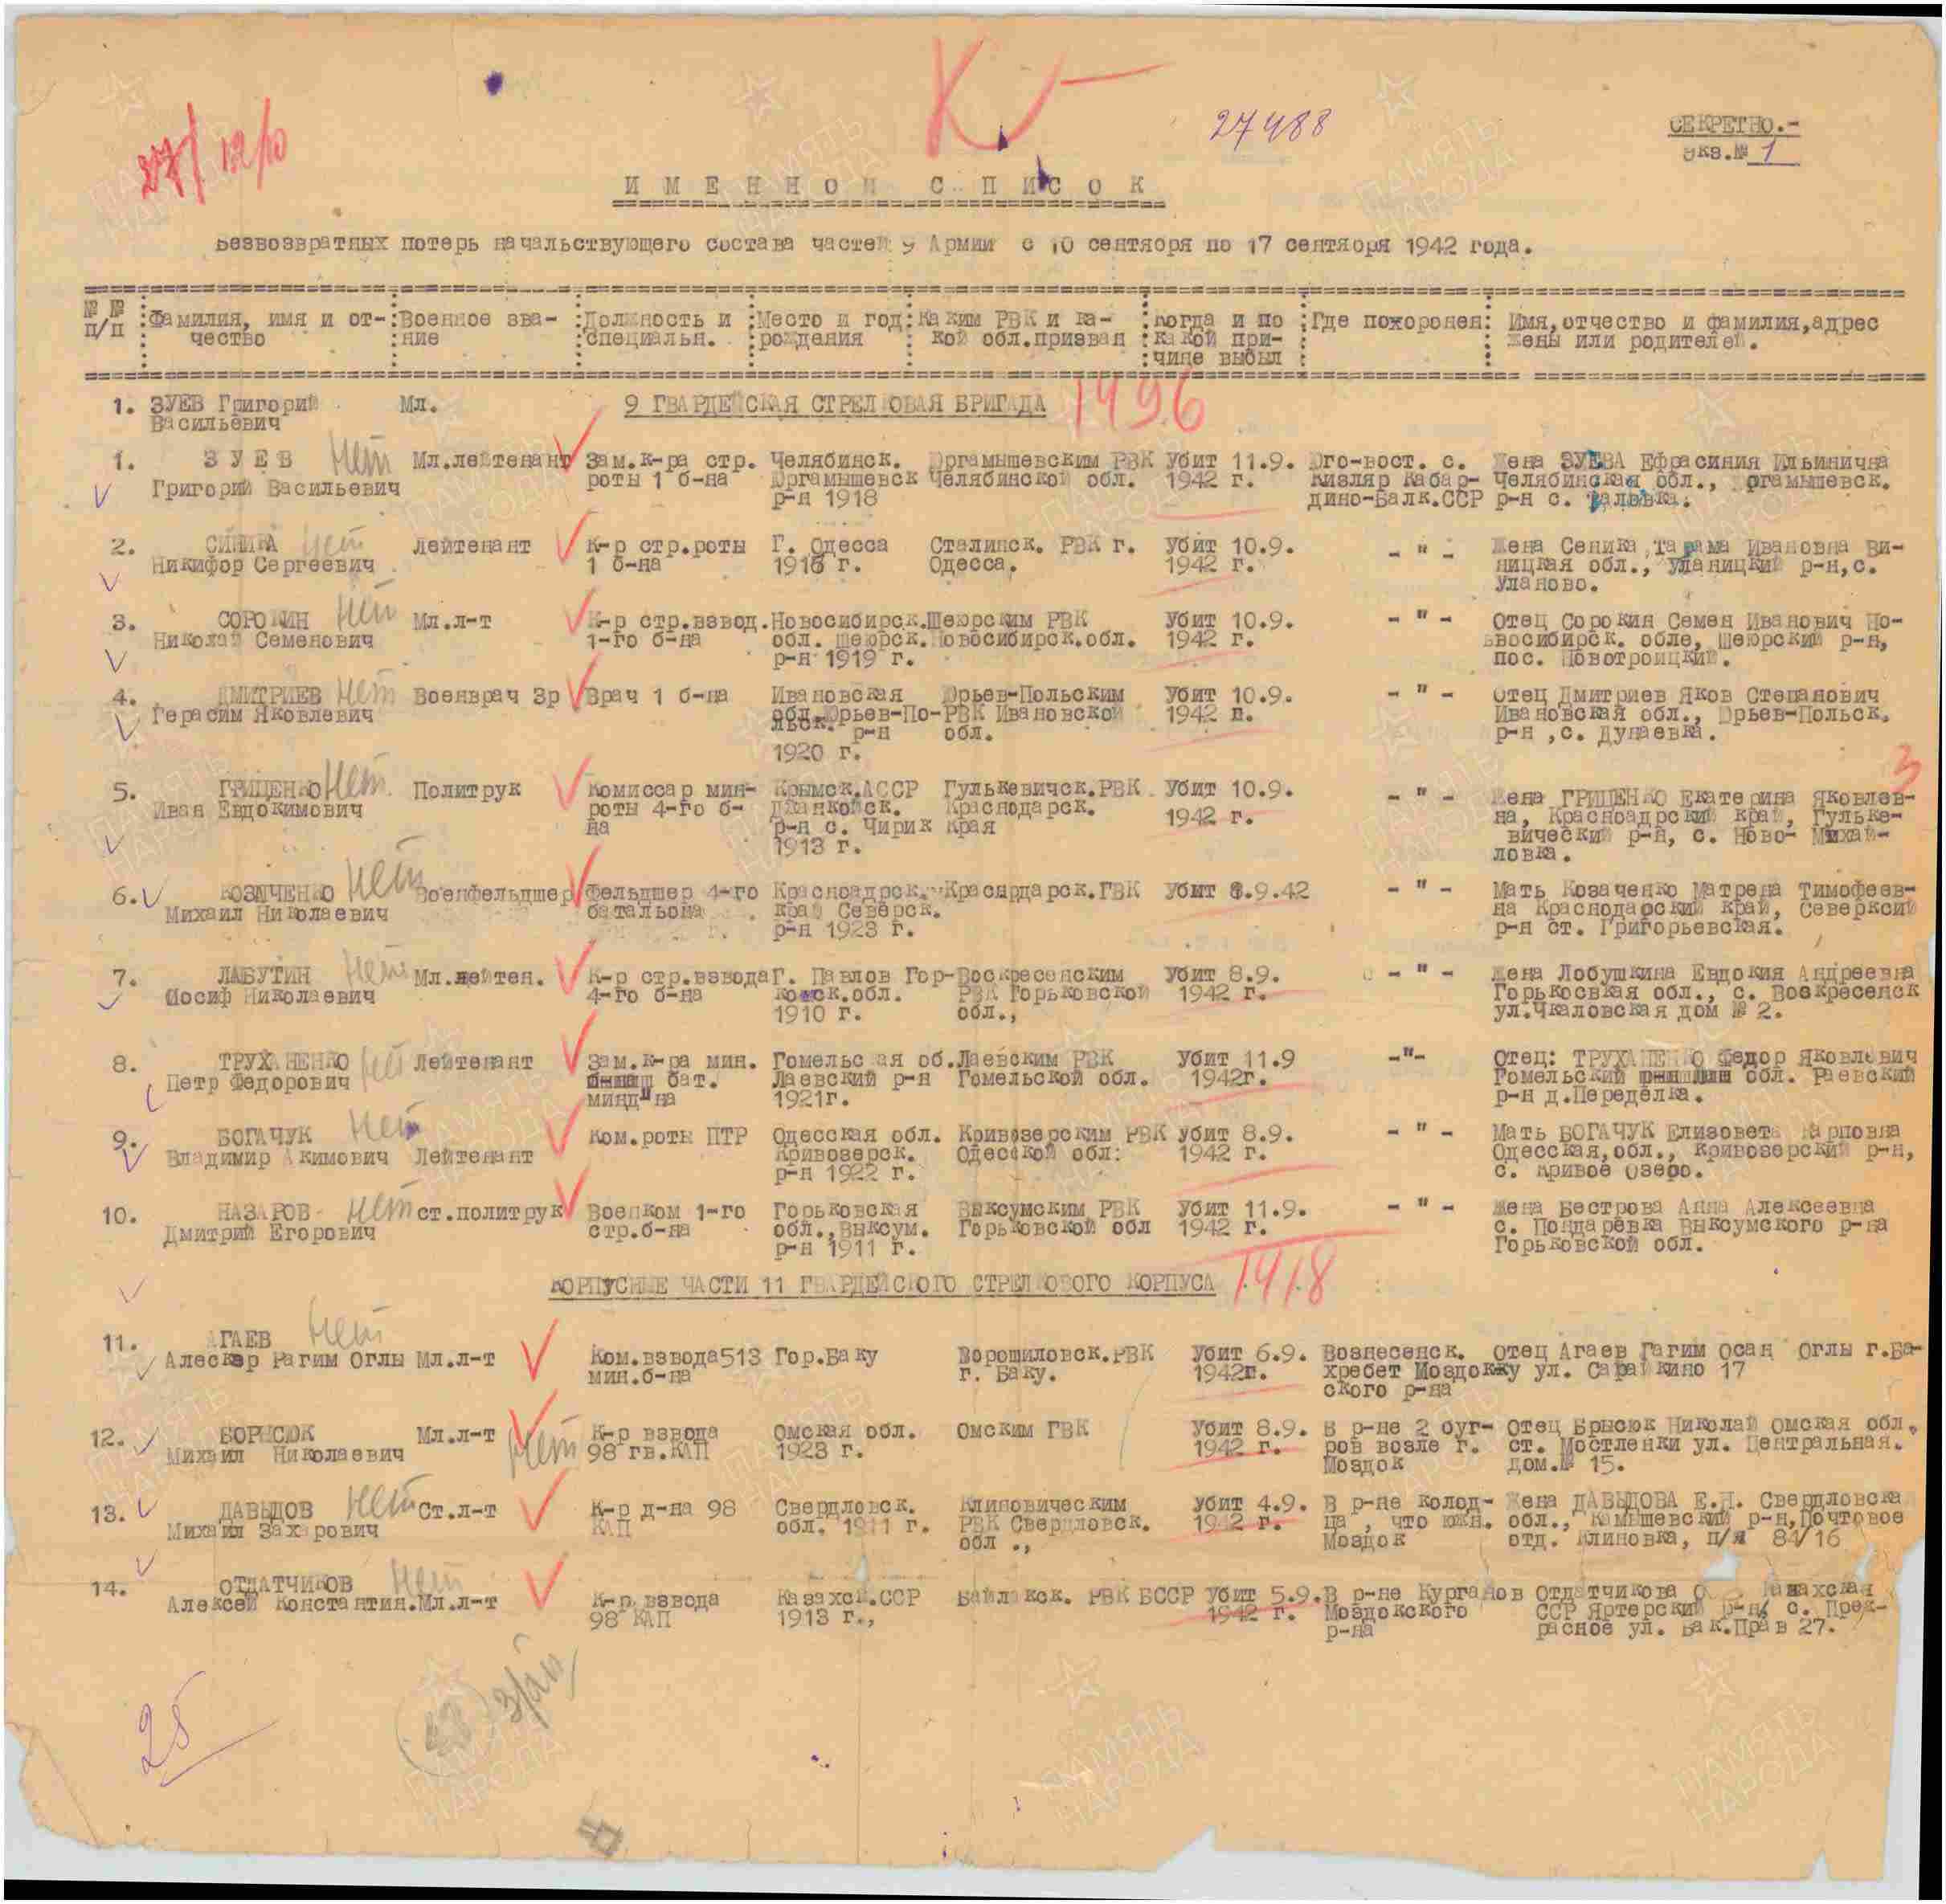 27/ 12/10
К
27488
СЕКРЕТНО.-
Экз.№ 1
ИМЕННОЙ СПИСОК
Безвозвратных потерь начальствующего состава частей 9 Армии с 10 сентября по 17 сентября 1942 года.
№ № п/п
Фамилия, имя и от-
чество
Военное зва-
ние
Должность и
специальн.
Место и год
рождения
Каким РВК и ка-
кой обл.призван
Когда и по
какой при-
чине выбыл
Где похоронен
Имя,отчество и фамилия,адрес
жены или родителей.
1. ЗУЕВ Григорий Мл.
Васильевич
9 ГВАРДЕЙСКАЯ СТРЕЛКОВАЯ БРИГАДА 1496
1. ЗУЕВ нет Мл.лейтенант Зам.к-ра стр. Челябинск. Юргамышевским РВК Убит 11.9. Юго-вост. с. Жена ЗУЕВА Ефрасиния Ильинична
Григорий Васильевич роты 1 б-на Юргамышевск Челябинской обл. 1942 г. Кизляр Кабар- Челябинская обл., Юргамышевск.
р-н 1918 дино-Балк.ССР р-н с.
2. СИНИКА нет Лейтенант К-р стр.роты Г. Одесса Сталинск. РВК г. Убит 10.9. - " - Жена Сеника, Ивановна Ви-
Никифор Сергеевич 1 б-на 1918 г. Одесса. 1942 г. ницкая обл., Уланицкий р-н,с.
Уланово.
3. СОРОКИН нет Мл.л-т К-р стр.взвод. Новосибирск. Шеюрским РВК Убит 10.9. - " - Отец Сорокин Семен Иванович Но-
Николай Семенович 1-го б-на обл. Шеюрск. Новосибирск.обл. 1942 г. ввосибирск. обле, Шеюрский р-н,
р-н 1919 г. пос. Новотроицкий.
4. ДМИТРИЕВ нет Военврач 3р Врач 1 б-на Ивановская Юрьев-Польским Убит 10.9. - " - Отец Дмитриев Яков Степанович
Герасим Яковлевич обл.Юрьев-По- РВК Ивановской 1942 г. Ивановская обл., Юрьев-Польск.
льск. р-н обл. р-н ,с. Дунаевка.
1920 г.
3
5. ГРИЦЕНКО нет Политрук Комиссар мин- Крымск.АССР Гулькевичск.РВК Убит 10.9. - " - Жена ГРИЦЕНКО Екатерина Яковлев-
Иван Евдокимович роты 4-го б- Джанкойск. Краснодарск. 1942 г. на, Красноадрский край, Гульке-
на р-н с. Чирик Края вический р-н, с. Ново- Михай-
1913 г. ловка.
6. КОЗАЧЕНКО нет Военфельдшер Фельдшер 4-го Красноадрск. Краснрдарск.ГВК Убит 8.9.42 - " - Мать Козаченко Матрена Тимофеев-
Михаил Николаевич батальона край Северск. на Краснодарский край, Северксий
р-н 1923 г. р-н ст. Григорьевская.
7. ЛАБУТИН нет Мл.лейтен. К-р стр.взвода Г. Павлов Гор- Воскресенским Убит 8.9. - " - Жена Лобушкина Евдокия Андреевна
Иосиф Николаевич 4-го б-на ковск.обл. РВК Горьковской 1942 г. Горькосвкая обл., с. Воскресенск
1910 г. обл., ул.Чкаловская дом № 2.
8. ТРУХАНЕНКО нет Лейтенант Зам.к-ра мин. Гомельская об. Лаевским РВК Убит 11.9 -"- Отец: ТРУХАНЕНКО Федор Яковлевич
Петр Федорович бат. Лаевский р-н Гомельской обл. 1942г. Гомельский обл. Раевский
минд"на 1921г. р-н д.Переделка.
9. БОГАЧУК нет Ком.роты ПТР Одесская обл. Кривозерским РВК Убит 8.9. - " - Мать БОГАЧУК Елизовета Карповна
Владимир Акимович Лейтенант Кривозерск. Одесской обл: 1942 г. Одесская,обл., Кривозерский р-н,
р-н 1922 г. с. Кривое Озеро.
10. НАЗАРОВ нет ст.политрук Военком 1-го Горьковская Выксумским РВК Убит 11.9. - " - Жена Бестрова Анна Алексеевна
Дмитрий Егорович стр.б-на обл.,Выксум. Горьковской обл 1942 г. с. Пондаревка Выксумского р-на
р-н 1911 г. Горьковской обл.
КОРПУСНЫЕ ЧАСТИ 11 ГВАРДЕЙСКОГО СТРЕЛКОВОГО КОРПУСА 1418
11. АГАЕВ нет
Алескер Рагим Оглы Мл.л-т Ком.взвода 513 Гор.Баку Ворошиловск.РВК Убит 6.9. Вознесенск. отец Агаев Гагим Осан Оглы г.Ба-
мин.б-на г. Баку. 1942г. хребет Моздок ку ул. Сарайкино 17
ского р-на
12. БОРЫСЮК Мл.л-т нет К-р взвода Омская обл. Омским ГВК Убит 8.9. В р-не 2 буг- Отец Брысюк Николай Омская обл.
Михаил Николаевич 98 гв.КАП 1923 г. 1942 г. ров возле г. ст. Мостленки ул. Центральная.
Моздок дом.№ 15.
13. ДАВЫДОВ нет Ст.л-т К-р д-на 98 Свердловск. Клиновическим Убит 4.9. В р-не колод- Жена ДАВЫДОВА Е.Н. Свердловска
Михаил Захарович КАП обл. 1911 г. РВК Свердловск. 1942 г. ца , что южн. обл., Камышевский р-н,Почтовое
обл ., Моздок отд. Клиновка, п/я 84/16
14. ОТДАТЧИКОВ нет К-р взвода Казахск.ССР РВК БССР Убит 5.9. В р-не Курганов Отдатчикова Казахская
Алексей Константин. Мл.л-т 98 КАП 1913 г., 1942 г. Моздокского ССР Яртерский р-н, с. Прек-
р-на расное ул. Бак.Прав 27.
25
ПАМЯТЬ НАРОДА